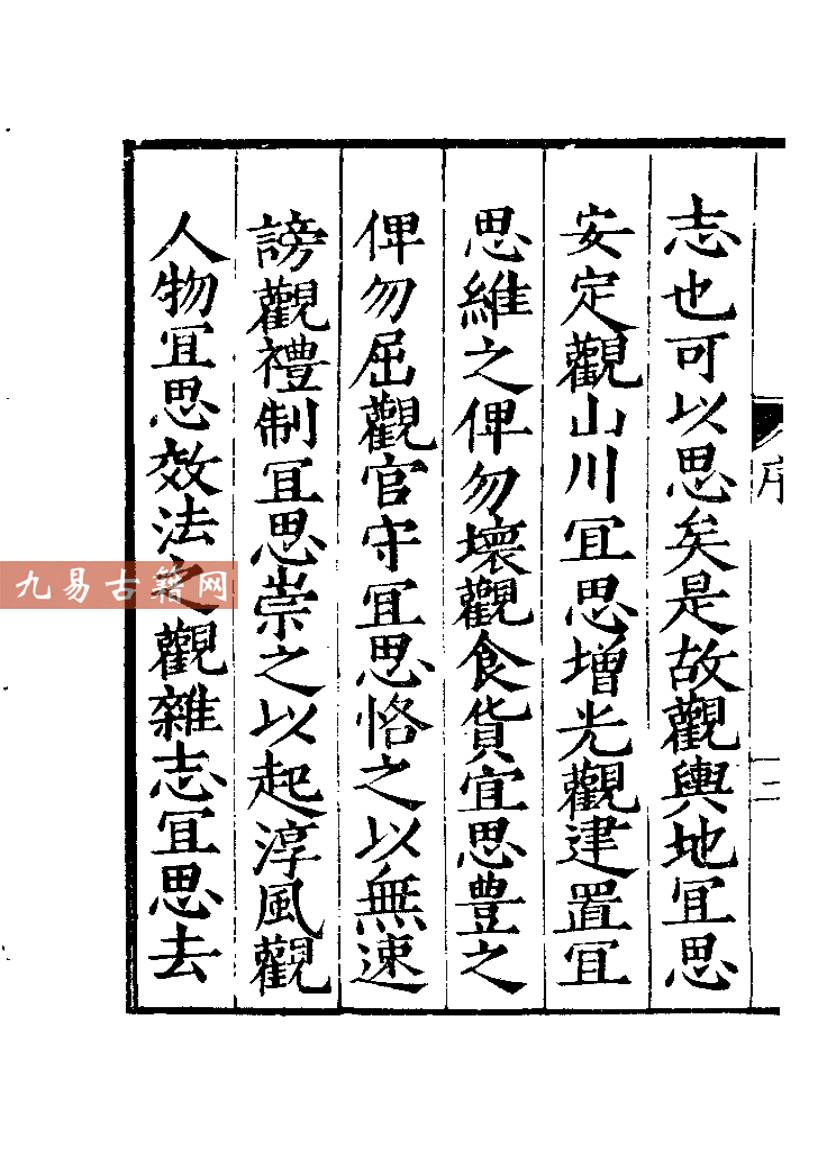 志也可以思矣是故觀輿地冝思
安定觀山川冝思增光觀建置冝
思維之俾勿壞觀食貨宜思豊之
俾勿屈觀官守冝思恪之以無速
謗觀禮制冝思崇之以起淳風觀
人物冝思效法之觀雜志冝思去
序
二
九易古籍网